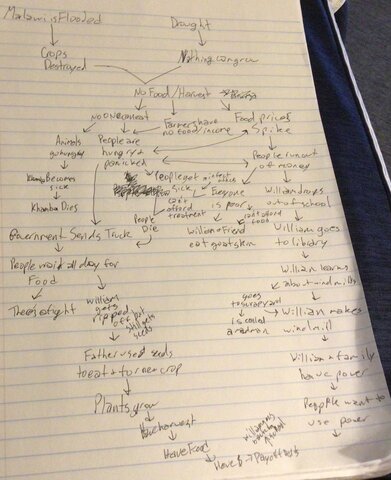 Malawi is Flooded
Drought
Crops
Destroyed
Nothing can grow
No Food/Harvest
No one eats
Farmers have
no food/income
Food prices
Spike
Animals
go hungry
People are
hungry +
panicked
People run out
of money
Khamba Becomes
sick
People get
sick
Everyone
is poor
William drops
out of school
Khamba Dies
can't
afford
treatment
People
Die
can't afford
food
Government Sends Truck
William + Friend
eat goatskin
William goes
to library
People wait all day for
Food
William learns
about windmills
There's a fight
William
gets
ripped
off but
still gets
seeds
goes
to scrapyard
is called
a madman
William makes
windmill
Father used seeds
to eat + for new crop
William + family
have power
Plants grow
People want to
use power
Have harvest
Have Food
Have $ → Pay off debts
William is
back in
school